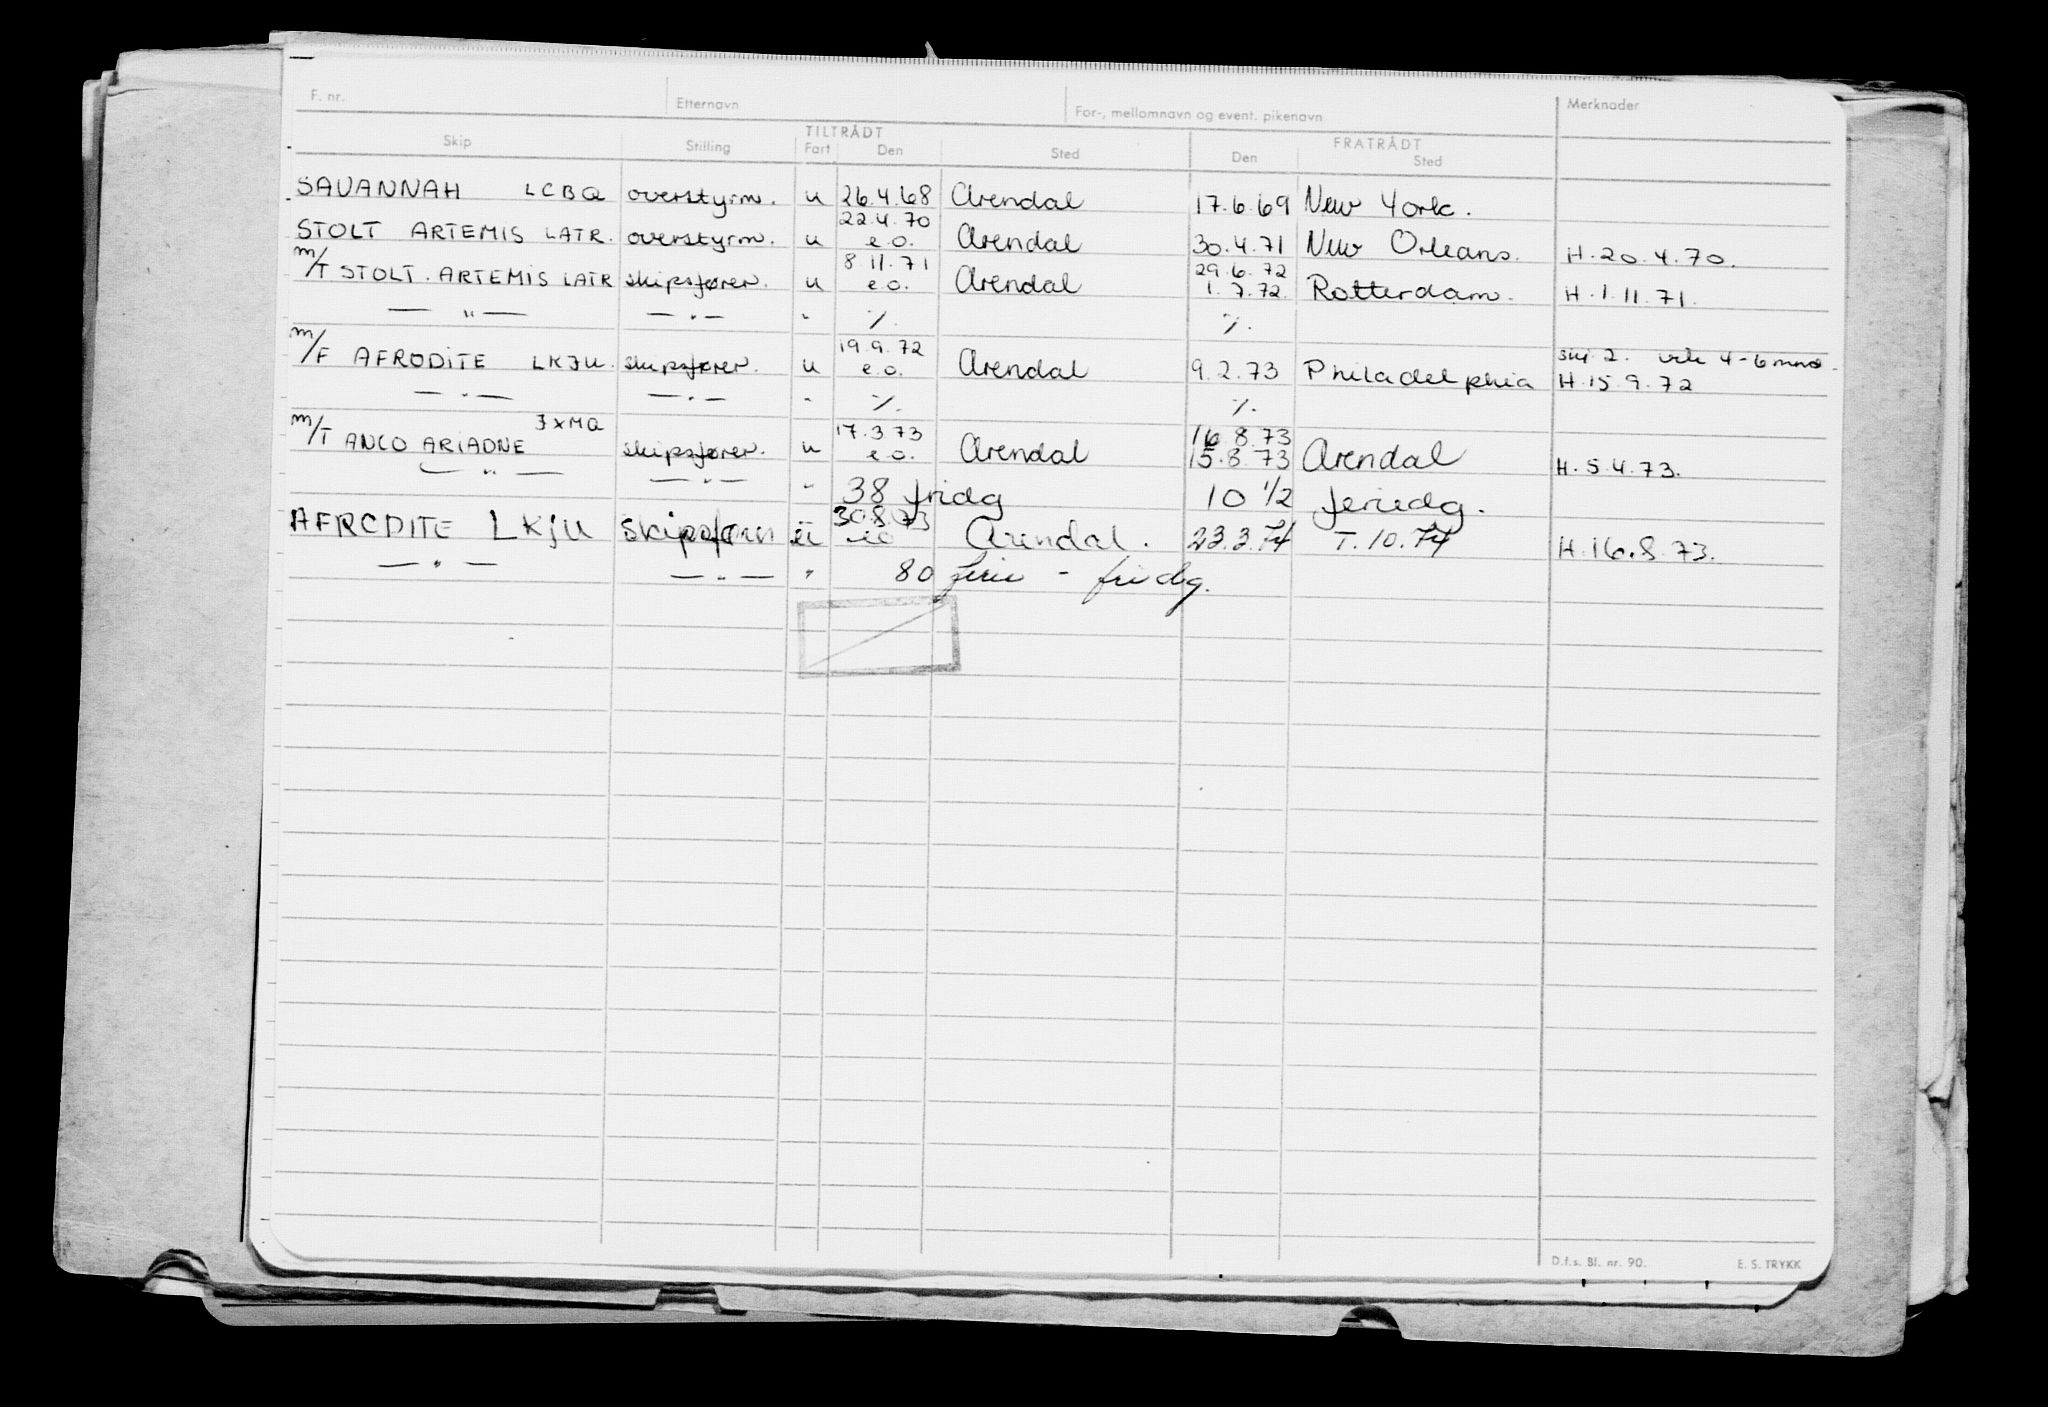 F. nr. Etternavn For-, mellomnavn og event. pikenavn Merknader
TILTRÅDT FRATRÅDT
Skip Stilling Fart Den Sted Den Sted
SAVANNAH LCBQ overstyrm. u 26.4.68 Arendal 17.6.69 New York.
22.4.70
STOLT ARTEMIS LATR. overstyrm. u e.o. Arendal 30.4.71 New Orleans. H.20.4.70.
8.11.71 29.6.72
m/T STOLT. ARTEMIS LATR skipsfører. u e.o. Arendal 1.7.72. Rotterdam. H.1.11.71.
— " — — " — " ./. ./.
19.9.72
m/F AFRODITE LKJU. skipsfører. u e.o. Arendal 9.2.73 Philadelphia H.15.9.72
— " — — " — " ./. ./.
JXMQ 17.3.73 16.8.73
m/T ANCO ARIADNE skipsfører. u e.o. Arendal 15.8.73 Arendal H.5.4.73.
— " — — " — " 38 fridg 10 1/2 feriedg.
30.8.73
AFRODITE LKJU skipsfører u eo Arendal. 23.3.74 T.10.74 H.16.8.73.
— " — — " — " 80 ferie - fridg.
D.f.s. Bl. nr. 90. E. S. TRYKK